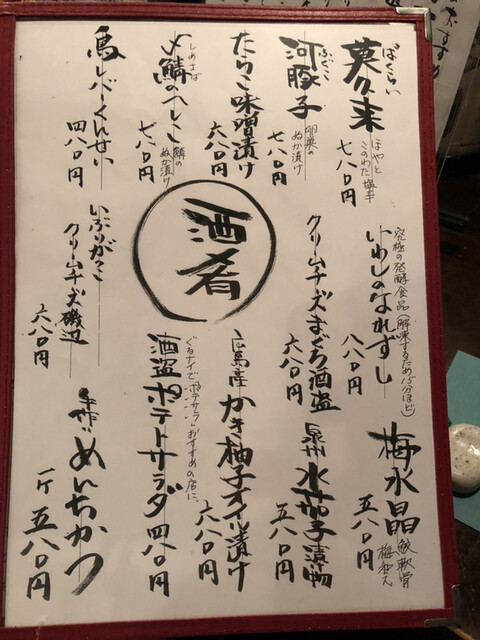 ばくらい
莫久来
ほやと
このわた塩辛
七八〇円
ふぐこ
河豚子
ぬか漬け
七八〇円
たらこ味噌漬け
六八〇円
しめさば
〆鯖のへしこ
鯖の
ぬか漬け
七八〇円
鳥レバーくんせい
四八〇円
酒肴
究極の発酵食品（解凍するため15分ほど）
いわしのなれずし
八八〇円
クリームチーズまぐろ酒盗
六八〇円
いぶりがっこ
クリームチーズ磯辺
六八〇円
梅水晶
鮫軟骨
梅和え
五八〇円
泉州水茄子漬物
五八〇円
広島産かき柚子オイル漬け
六八〇円
ぐるナイで「ポテサラ」おすすめの店に、
酒盗ポテトサラダ
四八〇円
めんちかつ
一ケ五八〇円